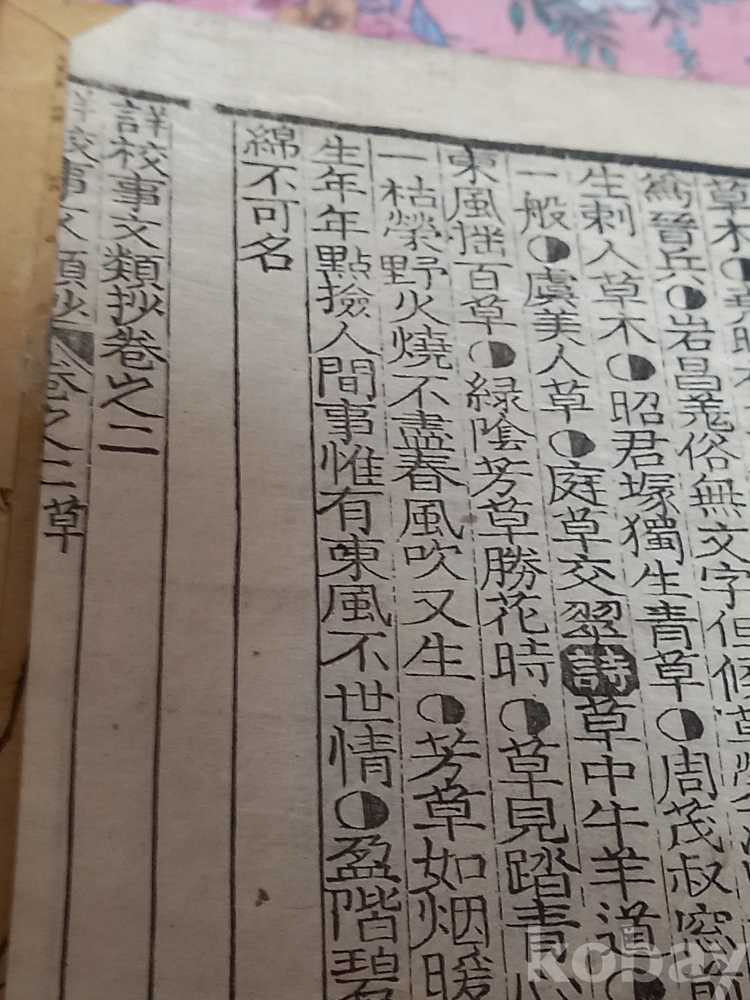 草木◐
爲晉兵◐岩昌羗俗無文字但候草榮
生刺人草木◐昭君塚獨生青草◐周茂叔窓前
一般◐虞美人草◐庭草交翠詩草中牛羊道◐
東風搖百草◐緑陰芳草勝花時◐草見踏青心
一枯榮野火燒不盡春風吹又生◐芳草如烟暖
生年年點撿人間事惟有東風不世情◐盈階碧
綿不可名
詳校事文類抄卷之二
詳校事文類抄 卷之二 草
kobay